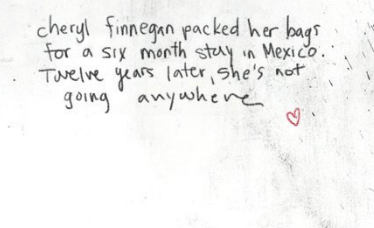 cheryl finnegan packed her bags
for a six month stay in Mexico.
Twelve years later, she's not
going anywhere